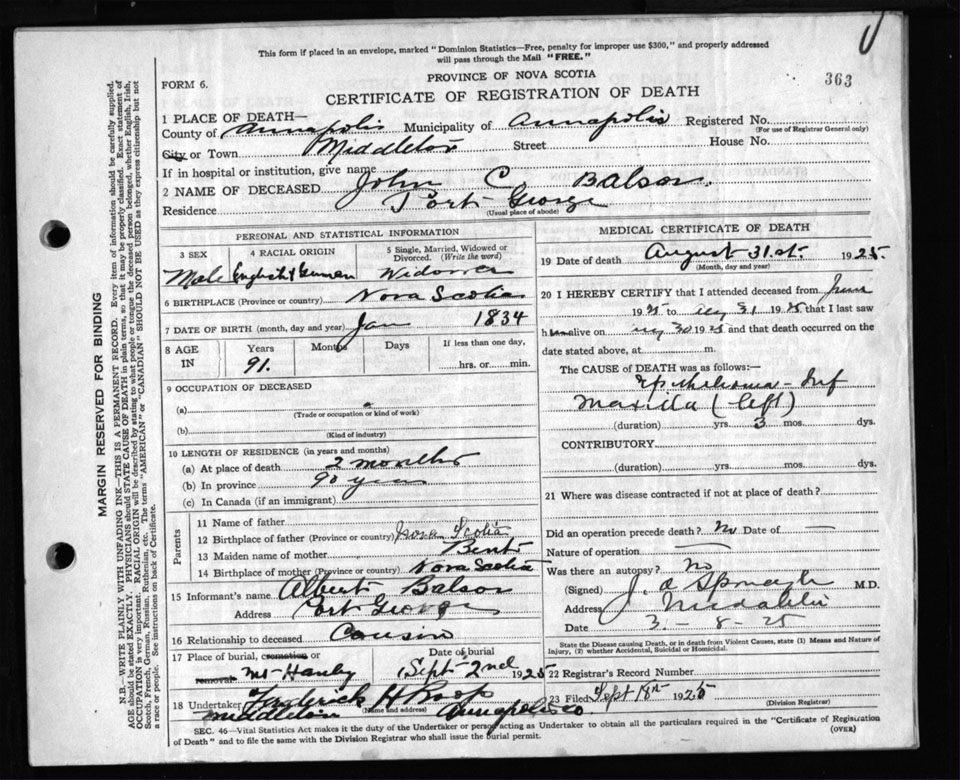 This form if placed in an envelope, marked "Dominion Statistics—Free, penalty for improper use $300," and properly addressed
will pass through the Mail "FREE."
PROVINCE OF NOVA SCOTIA
363
FORM 6.
CERTIFICATE OF REGISTRATION OF DEATH
1 PLACE OF DEATH—
County of Annapolis Municipality of Annapolis Registered No.
(For use of Registrar General only)
City or Town Middleton Street House No.
If in hospital or institution, give name
2 NAME OF DECEASED John C Balsor.
Residence Port George
(Usual place of abode)
PERSONAL AND STATISTICAL INFORMATION
3 SEX 4 RACIAL ORIGIN 5 Single, Married, Widowed or Divorced. (Write the word)
Male English & German Widower
6 BIRTHPLACE (Province or country) Nova Scotia
7 DATE OF BIRTH (month, day and year) Jan 1834
8 AGE IN Years Months Days If less than one day,
91. hrs. or min.
9 OCCUPATION OF DECEASED
(a)
(Trade or occupation or kind of work)
(b)
(Kind of industry)
10 LENGTH OF RESIDENCE (in years and months)
(a) At place of death 2 months
(b) In province 90 years
(c) In Canada (if an immigrant)
Parents
11 Name of father
12 Birthplace of father (Province or country) Nova Scotia
13 Maiden name of mother Bent
14 Birthplace of mother (Province or country) Nova Scotia
15 Informant's name Albert Balsor
Address Port George
16 Relationship to deceased Cousin
17 Place of burial, cremation or removal Date of burial
Mt Hanly Sept 2nd 1925
18 Undertaker Fredrick H Roop
(Name and address)
Middleton Annapolis Co
MEDICAL CERTIFICATE OF DEATH
19 Date of death August 31st. 1925.
(Month, day and year)
20 I HEREBY CERTIFY that I attended deceased from June
1925 to Aug 31 1925 that I last saw
h alive on Aug 30 1925 and that death occurred on the
date stated above, at m.
The CAUSE of DEATH was as follows:—
Epithelioma - Inf
Maxilla (left)
(duration) yrs. 3 mos. dys.
CONTRIBUTORY
(duration) yrs. mos. dys.
21 Where was disease contracted if not at place of death?
Did an operation precede death? No Date of —
Nature of operation —
Was there an autopsy? No
(Signed) J. A. Sponagle M.D.
Address Middleton
Date 3 - 8 - 25
State the Disease causing Death, or in death from Violent Causes, state (1) Means and Nature of
Injury, (2) whether Accidental, Suicidal or Homicidal.
22 Registrar's Record Number
23 Filed Sept 18th 1925
(Division Registrar)
SEC. 46—Vital Statistics Act makes it the duty of the Undertaker or person acting as Undertaker to obtain all the particulars required in the "Certificate of Registration
of Death" and to file the same with the Division Registrar who shall issue the burial permit. (OVER)
MARGIN RESERVED FOR BINDING
N.B.—WRITE PLAINLY WITH UNFADING INK—THIS IS A PERMANENT RECORD. Every item of information should be carefully supplied.
AGE should be stated EXACTLY. PHYSICIANS should STATE CAUSE OF DEATH in plain terms, so that it may be properly classified. Exact statement of
OCCUPATION is very important. RACIAL ORIGIN will be described by stating to what people or tongue the deceased person belonged, whether English, Irish,
Scotch, French, German, Russian, Ruthenian, etc. The terms "AMERICAN" or "CANADIAN" SHOULD NOT BE USED as they express citizenship but not
a race or people. See instructions on back of Certificate.